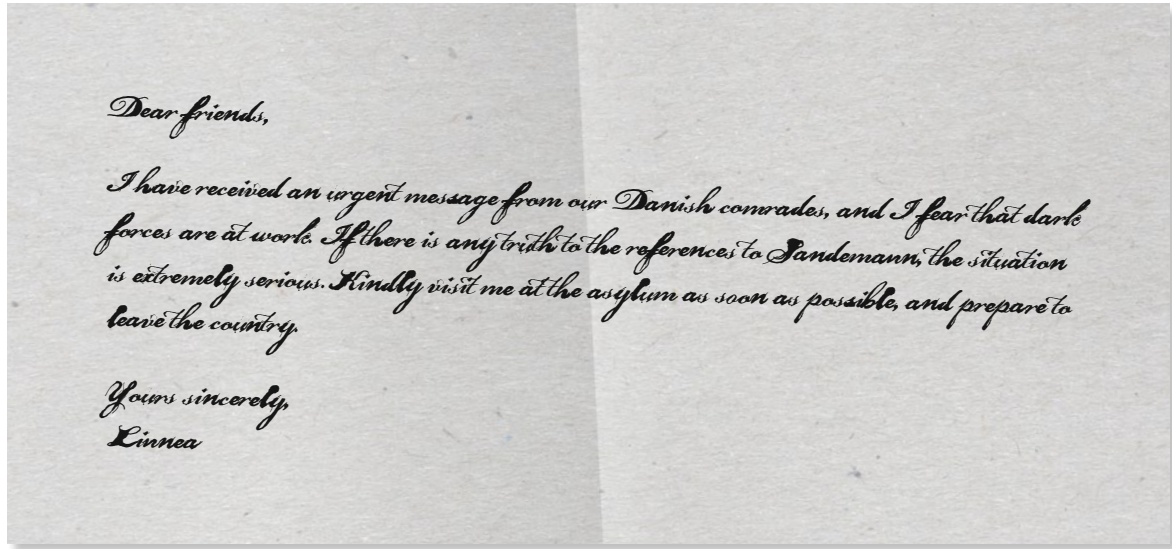 Dear friends,
I have received an urgent message from our Danish comrades, and I fear that dark
forces are at work. If there is any truth to the references to Sandemann, the situation
is extremely serious. Kindly visit me at the asylum as soon as possible, and prepare to
leave the country.
Yours sincerely,
Linnea